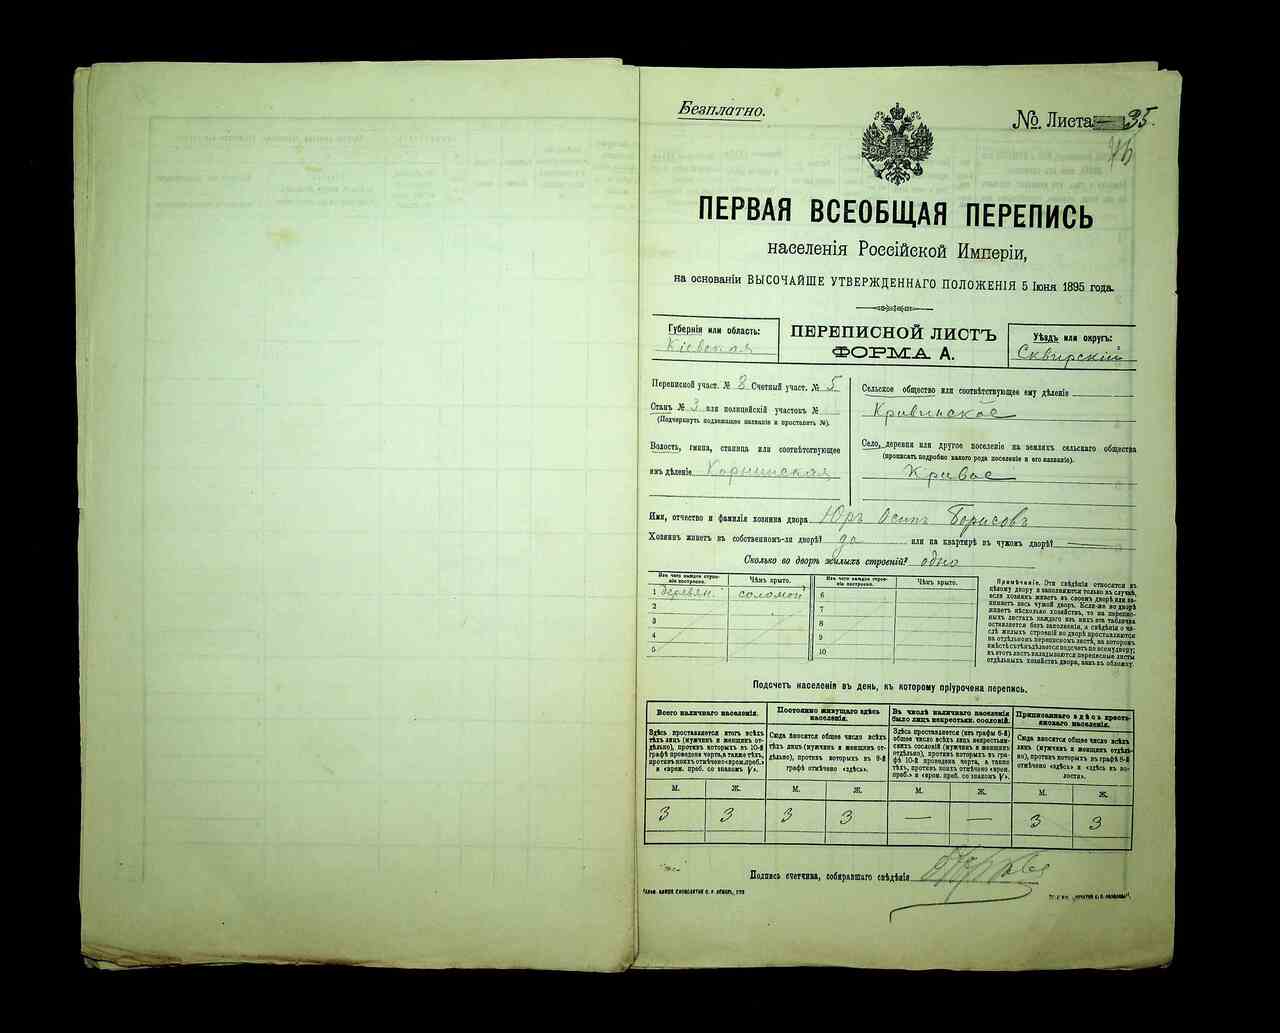 Безплатно.
№ Листа 35.
ПЕРВАЯ ВСЕОБЩАЯ ПЕРЕПИСЬ
населенія Россійской Имперіи,
на основаніи ВЫСОЧАЙШЕ УТВЕРЖДЕННАГО ПОЛОЖЕНІЯ 5 Іюня 1895 года.
Губернія или область:
Кіевская
ПЕРЕПИСНОЙ ЛИСТЪ
ФОРМА А.
Уѣздъ или округъ:
Сквирскій
Переписной участ. № 8 Счетный участ. № 5
Станъ № 3 или полицейскій участокъ №
(Подчеркнуть подлежащее названіе и проставить №).
Волость, гмина, станица или соотвѣтствующее
имъ дѣленіе Корнинская
Сельское общество или соотвѣтствующее ему дѣленіе
Кривинское
Село, деревня или другое поселеніе на земляхъ сельскаго общества
(прописать подробно какого рода поселеніе и его названіе).
Кривое
Имя, отчество и фамилія хозяина двора Юръ Осипъ Борисовъ
Хозяинъ живетъ въ собственномъ-ли дворѣ? да или на квартирѣ въ чужомъ дворѣ?
Сколько во дворѣ жилыхъ строеній? одно
Изъ чего каждое строе-
ніе построено.
Чѣмъ крыто.
Изъ чего каждое строе-
ніе построено.
Чѣмъ крыто.
1 деревян. соломой
2
3
4
5
6
7
8
9
10
Примѣчаніе. Эти свѣдѣнія относятся къ
цѣлому двору и заполняются только въ случаѣ,
если хозяинъ живетъ въ своемъ дворѣ или за-
нимаетъ весь чужой дворъ. Если-же во дворѣ
живетъ нѣсколько хозяйствъ, то на перепис-
ныхъ листахъ каждаго изъ нихъ эта табличка
оставляется безъ заполненія, а свѣдѣнія о чи-
слѣ жилыхъ строеній во дворѣ проставляются
на отдѣльномъ переписномъ листѣ, на которомъ
вмѣстѣ съ тѣмъ дѣлается подсчетъ по всему двору;
въ этотъ листъ вкладываются переписные листы
отдѣльныхъ хозяйствъ двора, какъ въ обложку.
Подсчетъ населенія въ день, къ которому пріурочена перепись.
Всего наличнаго населенія.
Здѣсь проставляется итогъ всѣхъ
тѣхъ лицъ (мужчинъ и женщинъ от-
дѣльно), противъ которыхъ въ 10-й
графѣ проведена черта, а также тѣхъ,
противъ коихъ отмѣчено «врем. преб.»
и «врем. преб. со знакомъ V».
Постоянно живущаго здѣсь
населенія.
Сюда вносится общее число всѣхъ
тѣхъ лицъ (мужчинъ и женщинъ от-
дѣльно), противъ которыхъ въ 9-й
графѣ отмѣчено «здѣсь».
Въ числѣ наличнаго населенія
было лицъ некрестьян. сословій.
Здѣсь проставляется (изъ графы 6-й)
общее число всѣхъ лицъ некрестьян-
скихъ сословій (мужчинъ и женщинъ
отдѣльно), противъ которыхъ въ гра-
фѣ 10-й проведена черта, а также
тѣхъ, противъ коихъ отмѣчено «врем.
преб.» и «врем. преб. со знакомъ V».
Приписаннаго здѣсь кресть-
янскаго населенія.
Сюда вносится общее число всѣхъ
лицъ (мужчинъ и женщинъ отдѣль-
но), противъ которыхъ въ графѣ 8-й
отмѣчено «здѣсь» и «здѣсь въ во-
лости».
М. Ж. М. Ж. М. Ж. М. Ж.
3 3 3 3 — — 3 3
Подпись счетчика, собиравшаго свѣдѣнія